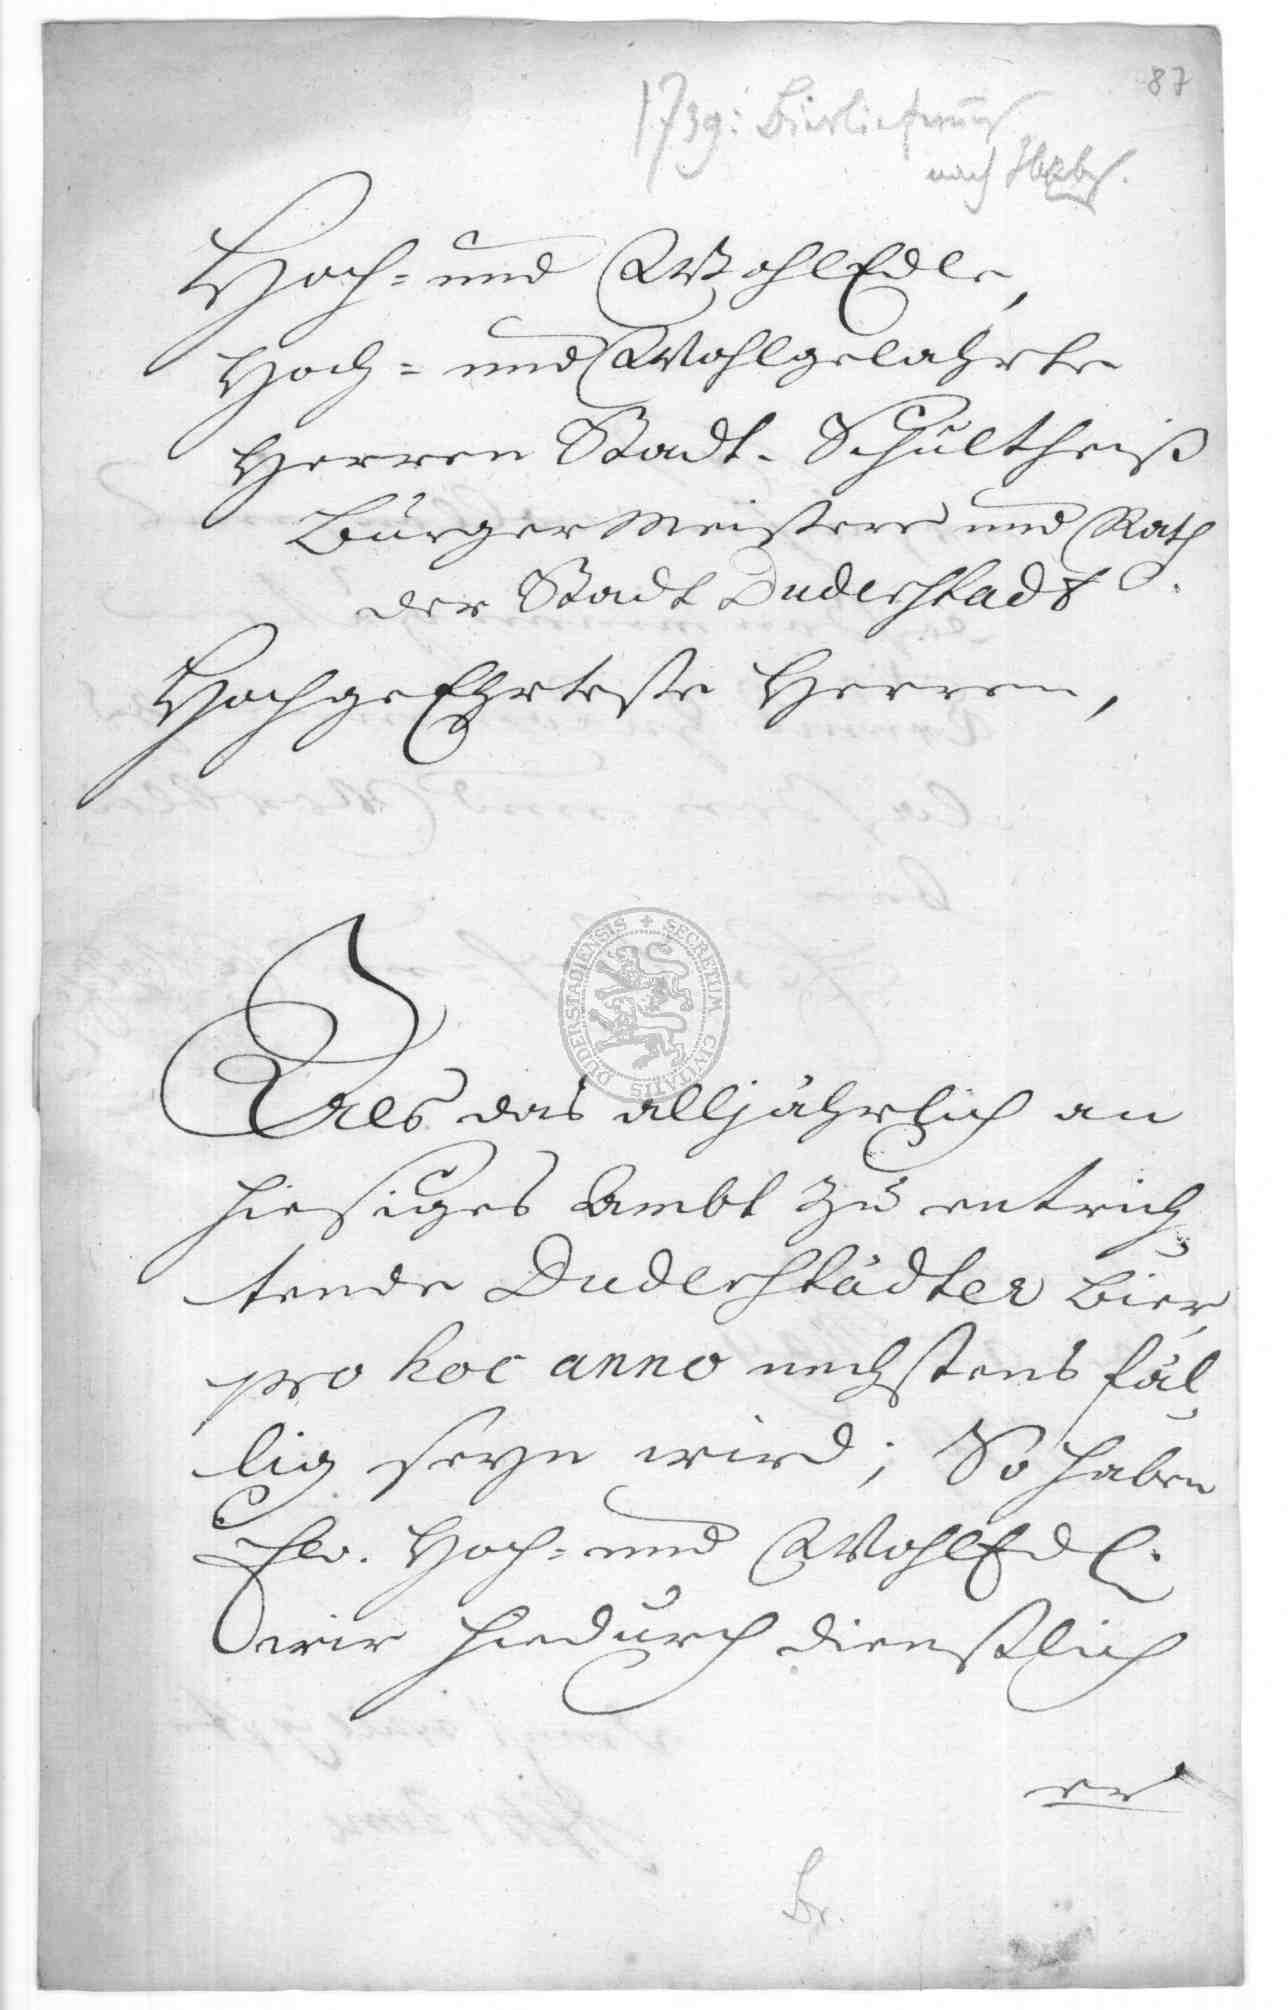 87
1739: Bierlieferung
nach
Hoch- und WohlEdle,
Hoch- und Wohlgelahrte
Herren Stadt-Schultheiß
Bürger Meistere und Rath
der Stadt Duderstadt
HochgeEhrteste Herren,
DUDERSTADIENSIS + SECRETUM CIVITATIS
Als das alljährlich an
hiesiges Ambt zu entrich-
tende Duderstädter Bier
pro hoc anno nechstens fäl-
lig seyn wird; So haben
Ew. Hoch- und WohlEdl.
wir hiedurch dienstlich
er
Br.